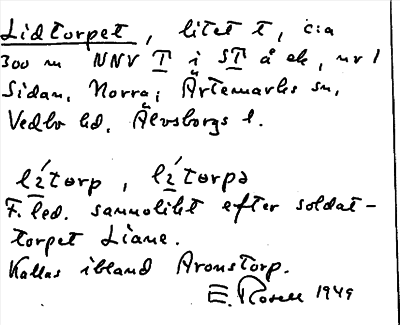 Lidtorpet, litet t, c:a
300 m NNV T i ST å ek, nr 1
Sidan, Norra; Ärtemarks sn,
Vedbo hd, Älvsborgs l.
lí̱torp, lí̱tɵrpə
F. led. sannolikt efter soldat-
torpet Liane.
Kallas ibland Aronstorp.
E. Rosell 1949